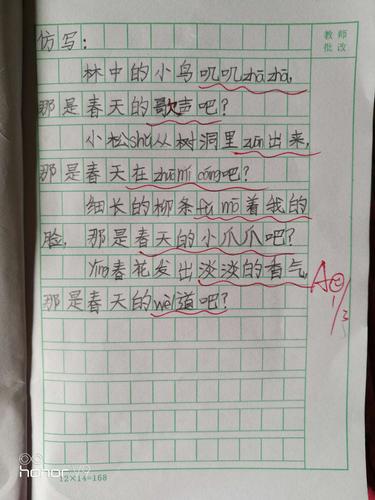 仿写:
教师
批改
林中的小鸟叽叽zhā zhā,
那是春天的歌声吧?
小松shǔ从树洞里zuān出来,
那是春天在zhuō mí cáng吧?
细长的柳条fǔ mō着我的
脸,那是春天的小爪爪吧?
Yíng春花发出淡淡的香气,
那是春天的wèi道吧?
A
1/3
honor V9
12×14=168